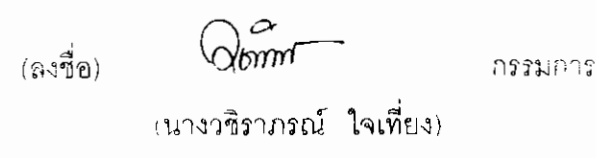 (ลงชื่อ) กรรมการ
(นางวชิราภรณ์ ใจเที่ยง)